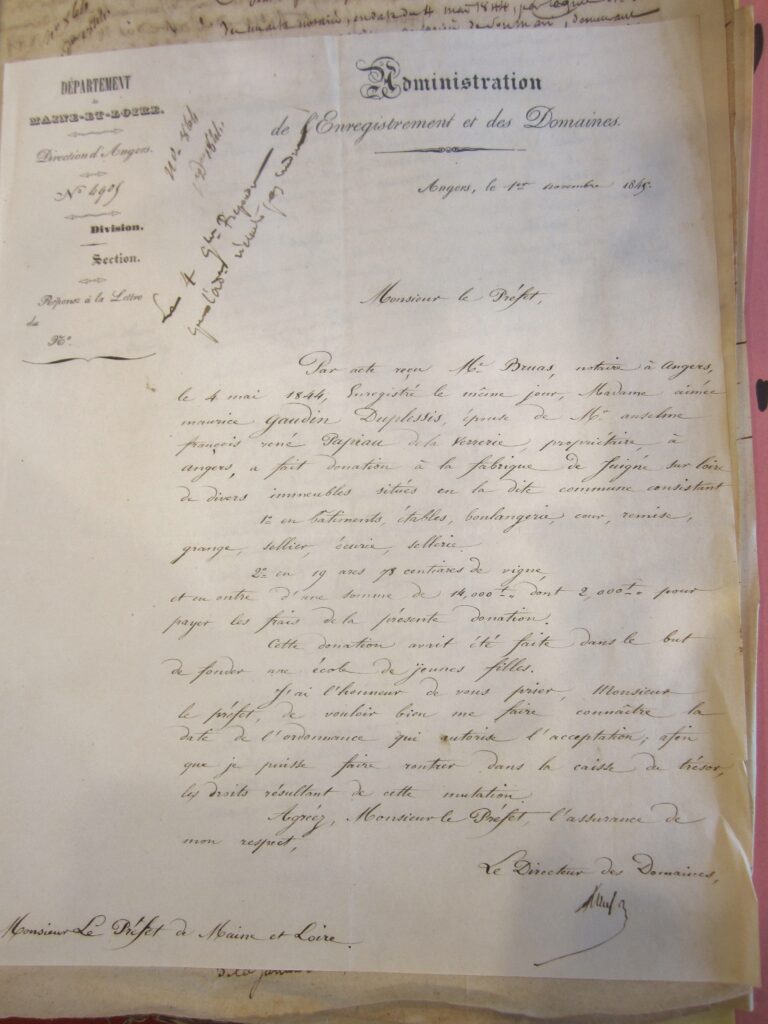 du 4 mai 1844, par laquelle
DÉPARTEMENT
de
MAINE-ET-LOIRE.
Direction d'Angers.
N° 4905
Division.
Section.
Réponse à la Lettre
du
N°
Administration
de l'Enregistrement et des Domaines.
Angers, le 1er novembre 1845.
Le 4
Monsieur le Préfet,
Par acte reçu Me Bruas, notaire à Angers,
le 4 mai 1844, Enregistré le même jour, Madame aimée
maurice Gaudin Duplessis, épouse de Mr anselme
françois rené Papiau de la Verrerie, propriétaire, à
angers, a fait donation à la fabrique de Juigné sur loire
de divers immeubles situés en la dite commune consistant
1° en bâtiments, étables, boulangerie, cour, remise,
grange, sellier, écurie, sellerie
2° en 19 ares 78 centiares de vigne
et en outre d'une somme de 14,000 f. dont 2,000 f. pour
payer les frais de la présente donation.
Cette donation avait été faite dans le but
de fonder une école de jeunes filles.
J'ai l'honneur de vous prier, Monsieur
le préfet, de vouloir bien me faire connaître la
date de l'ordonnance qui autorise l'acceptation; afin
que je puisse faire rentrer dans la caisse du trésor,
les droits résultant de cette mutation.
Agréez, Monsieur le Préfet, l'assurance de
mon respect,
Le Directeur des Domaines,
Monsieur Le Préfet de Maine et Loire.